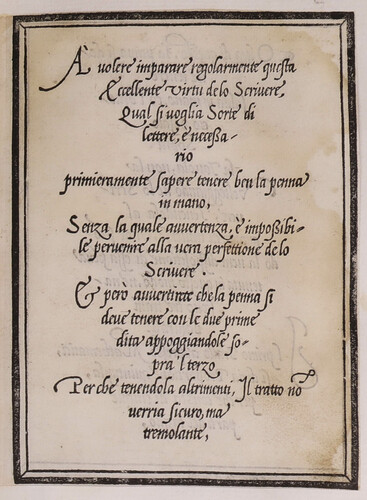 A volere imparare regolarmente questa
Eccellente Virtu de lo Scrivere,
Qual si voglia Sorte di
lettere, è neceßa-
rio
primieramente sapere tenere ben la penna
in mano,
Senza la quale auuertenza, è impoßibi-
le peruenire alla uera perfettione de lo
Scrivere.
& però auuertirete che la penna si
deue tenere con le due prime
dita appoggiandole so-
pra 'l terzo
Perche tenendola altrimenti, Il tratto nõ
uerria sicuro, ma
tremolante,